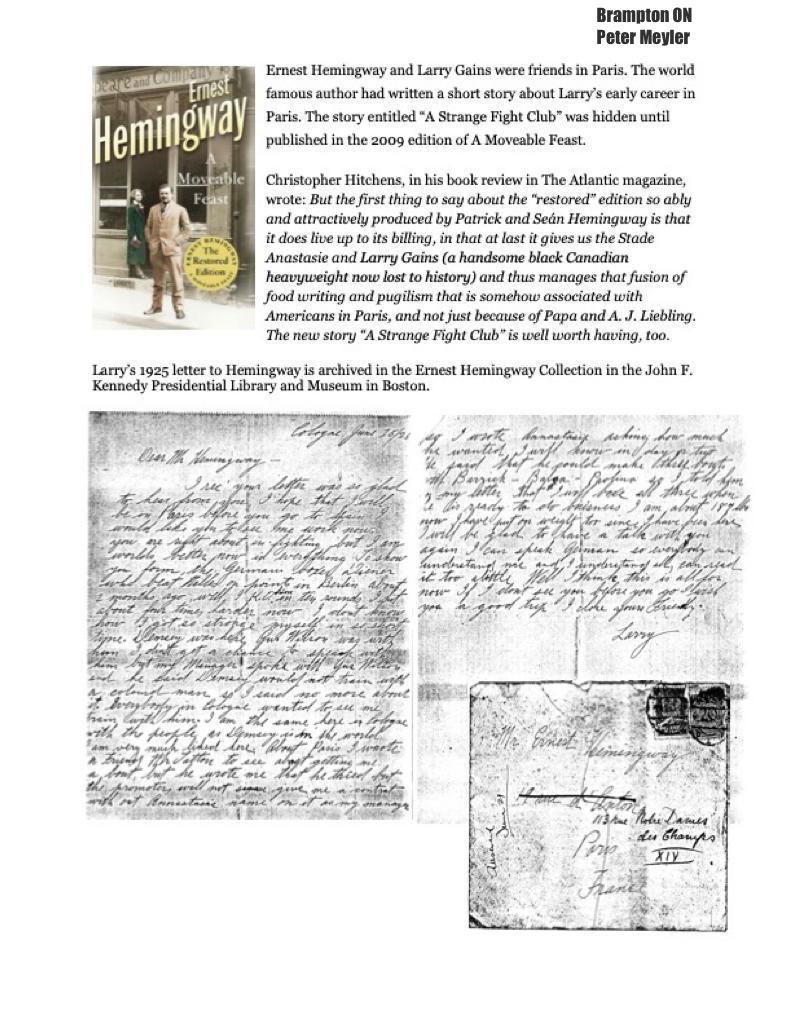 Brampton ON
Peter Meyler
peare and Company
Ernest
Hemingway
A
Moveable
Feast
The
Restored
Edition
Ernest Hemingway and Larry Gains were friends in Paris. The world
famous author had written a short story about Larry's early career in
Paris. The story entitled “A Strange Fight Club” was hidden until
published in the 2009 edition of A Moveable Feast.
Christopher Hitchens, in his book review in The Atlantic magazine,
wrote: But the first thing to say about the “restored” edition so ably
and attractively produced by Patrick and Seán Hemingway is that
it does live up to its billing, in that at last it gives us the Stade
Anastasie and Larry Gains (a handsome black Canadian
heavyweight now lost to history) and thus manages that fusion of
food writing and pugilism that is somehow associated with
Americans in Paris, and not just because of Papa and A. J. Liebling.
The new story “A Strange Fight Club” is well worth having, too.
Larry’s 1925 letter to Hemingway is archived in the Ernest Hemingway Collection in the John F.
Kennedy Presidential Library and Museum in Boston.
Cologne June
Dear Mr Hemingway —
I rec your letter was so glad
to hear from you. I hope that I will
be in Paris before you go to
would like you to see me work now
you are right about in-fighting but I am
worlds better now in everything. I show
you form, the German boxer Diener
who beat on points in Berlin about
2 months ago, well I in ten rounds I hit
about four times harder now I don't know
how I got so strong myself in so short
time. Dempsey was here Gus Wilson was with
him I didn't get a chance to speak with
him but my Manager spoke with Gus Wilson
and he said Dempsey would not train with
a colored man, so I said no more about
it. Everybody in Cologne wanted to see me
train with him. I am the same here in Cologne
with the people as Dempsey is in the world
am very much liked here. About Paris I wrote
a friend to see about getting me
a bout, but he wrote me that he tried but
the promoters will not give me a contract
with out Annastasie name on it as my manager
so I wrote Annastasie asking how much
he wanted I will know in a day or two
he said that he could make three bouts
so I told him
in my letter that I will box all three when
he is ready to do business I am about 187 lbs
now I have put on weight too since I have been here
I will be glad to have a talk with you
again I can speak German so everybody can
understand me and I understand it, can read
it too a little Well I think this is all for
now If I don't see you before you go I wish
you a good trip I close yours Truly.
Larry
Mr. Ernest Hemingway
113 rue Notre Dames
des Champs
Paris
XIV
France